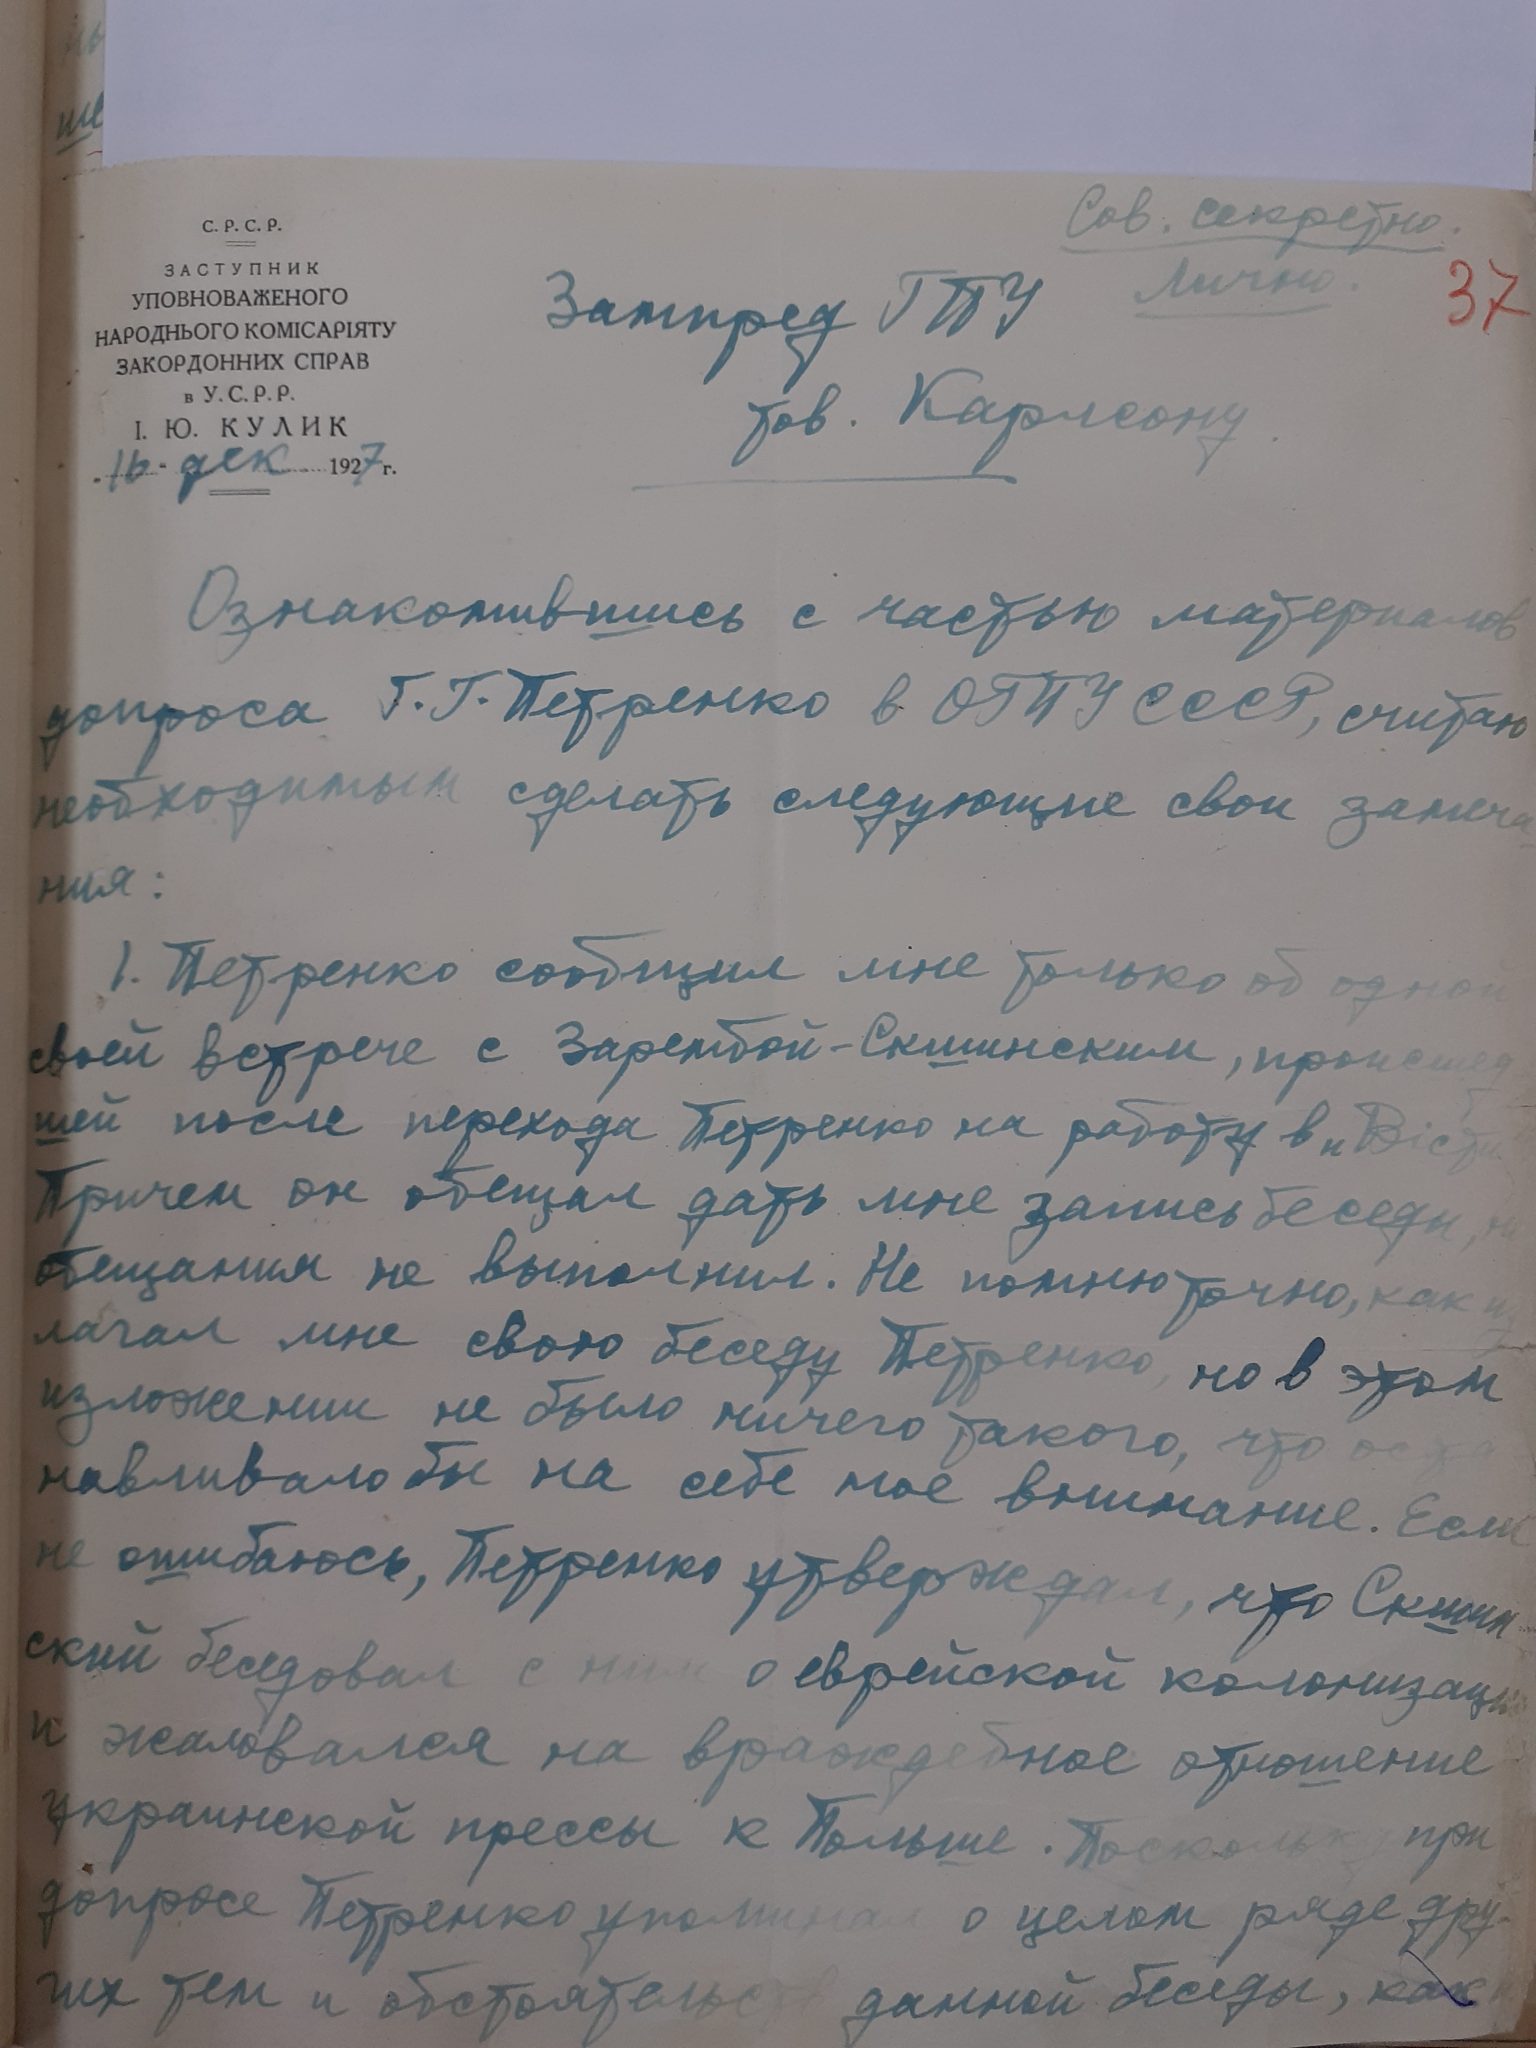 Сов. секретно.
Лично.
37
С. Р. С. Р.
ЗАСТУПНИК
УПОВНОВАЖЕНОГО
НАРОДНЬОГО КОМІСАРІЯТУ
ЗАКОРДОННИХ СПРАВ
в У.С.Р.Р.
І. Ю. КУЛИК
"16" дек 1927 г.
Зампред ГПУ
тов. Карлсону.
Ознакомившись с частью материалов
допроса Г.Г. Петренко в ОГПУ СССР, считаю
необходимым сделать следующие свои замеча
ния:
1. Петренко сообщил мне только об одной
своей встрече с Зарембой-Скшинским, происшед
шей после перехода Петренко на работу в „Вісти
Причем он обещал дать мне запись беседы, но
обещания не выполнил. Не помню точно, как из
лагал мне свою беседу Петренко, но в этом
изложении не было ничего такого, что оста
навливало бы на себе мое внимание. Если
не ошибаюсь, Петренко утверждал, что Скшин-
ский беседовал с ним о еврейской колонизации
и жаловался на враждебное отношение
украинской прессы к Польше. Поскольку при
допросе Петренко упоминал о целом ряде дру-
гих тем и обстоятельств данной беседы, как